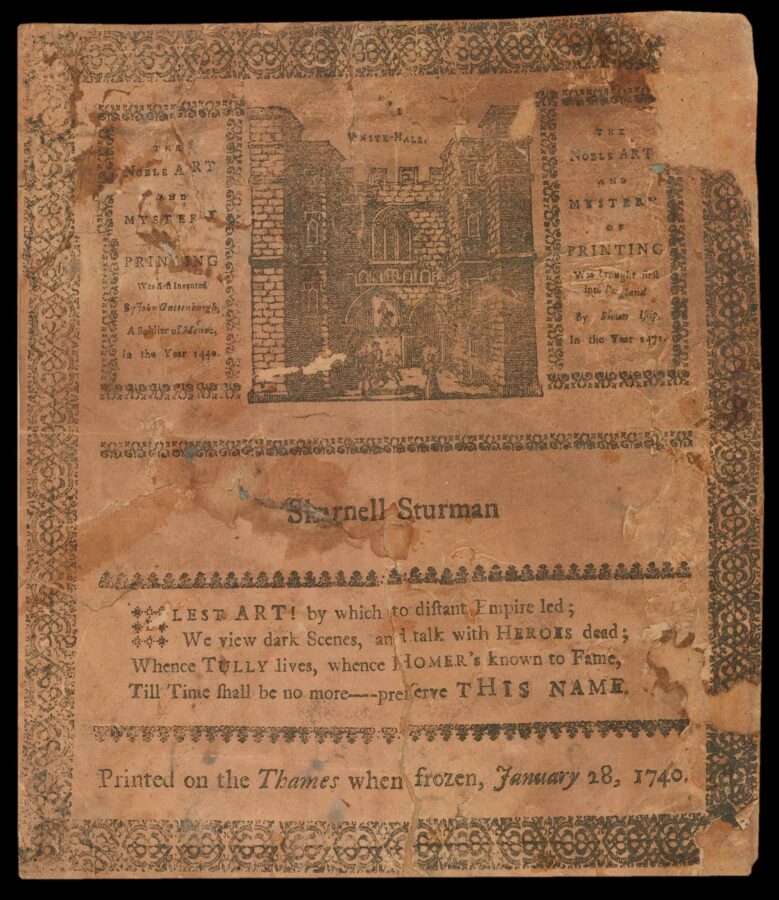 WHITE-HALL.
THE
NOBLE ART
AND
MYSTERY
PRINTING
Was first Invented
By John Guttenburgh,
A Soldier of Mentz,
In the Year 1440.
THE
NOBLE ART
AND
MYSTERY
OF
PRINTING
Was brought first
into England
By Simon Islip,
In the Year 1471.
Skarnell Sturman
BLEST ART! by which to diſtant Empire led;
We view dark Scenes, and talk with HEROES dead;
Whence TULLY lives, whence HOMER's known to Fame,
Till Time ſhall be no more----preſerve THIS NAME.
Printed on the Thames when frozen, January 28, 1740.